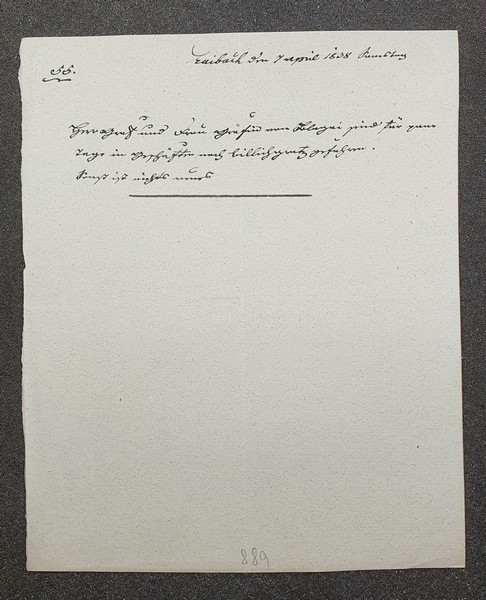 Laibach den 7 april 1838 Samstag
55.
Herr Graf und Frau Gräfin von Blagai sind für paar
Tage in Geschäften nach Billichgratz gefahren.
Sonst ist nichts neues
889